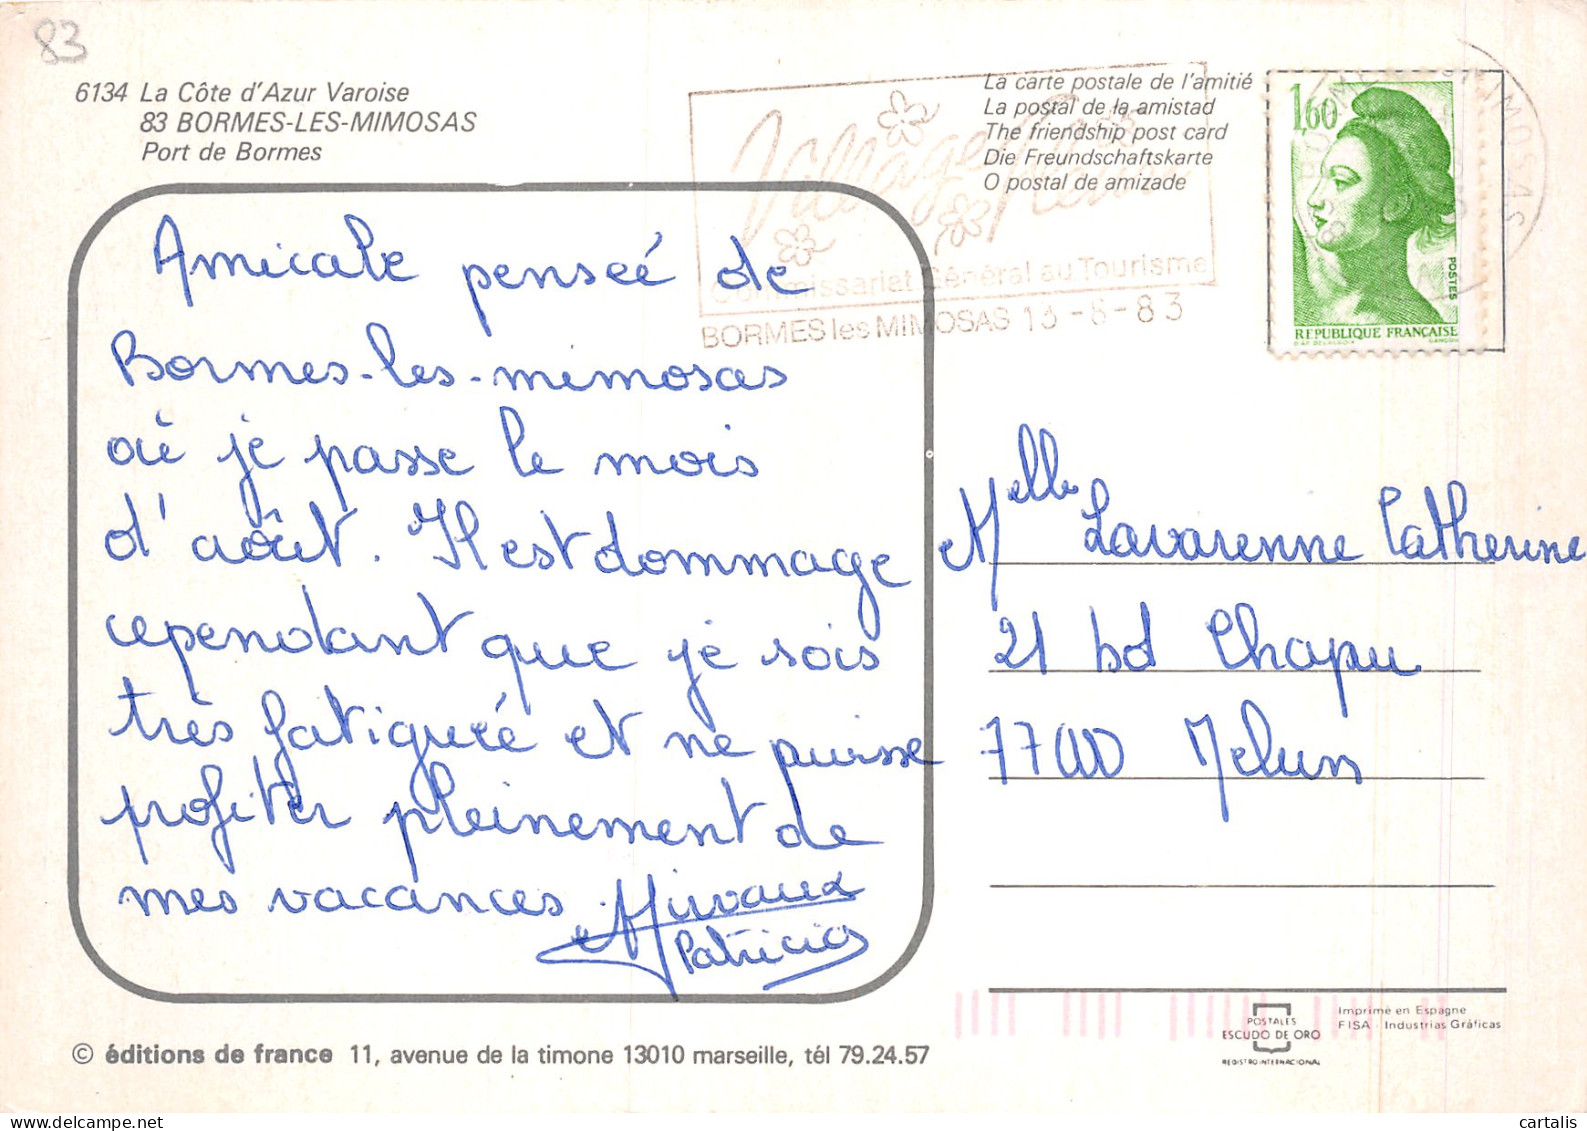 83
6134 La Côte d'Azur Varoise
83 BORMES-LES-MIMOSAS
Port de Bormes
La carte postale de l'amitié
La postal de la amistad
The friendship post card
Die Freundschaftskarte
O postal de amizade
Village
Commissariat Général au Tourisme
BORMES les MIMOSAS 13-8-83
1,60
POSTES
REPUBLIQUE FRANÇAISE
GANDON
Amicale penseé de
Bormes-les-mimosas
où je passe le mois
d'août. Il est dommage
cependant que je sois
très fatiguée et ne puisse
profiter pleinement de
mes vacances.
Mivaux
Patricia
Melle Lavarenne Catherine
21 bd Chapu
77000 Melun
© éditions de france 11, avenue de la timone 13010 marseille, tél 79.24.57
POSTALES
ESCUDO DE ORO
REGISTRO INTERNACIONAL
Imprimé en Espagne
FISA - Industrias Gráficas
cartalis